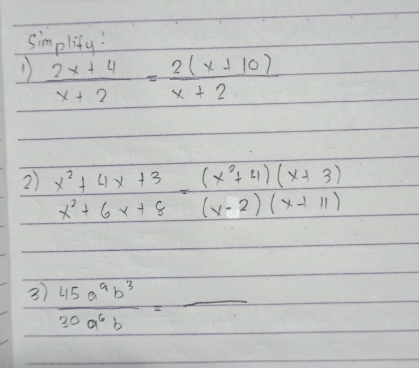 Simplify:
1) 2x + 4 / x + 2 = 2(x + 10) / x + 2
2) x² + 4x + 3 / x² + 6x + 8 = (x² + 4)(x + 3) / (x - 2)(x + 11)
3) 45 a⁹ b³ / 30 a⁶ b = ___